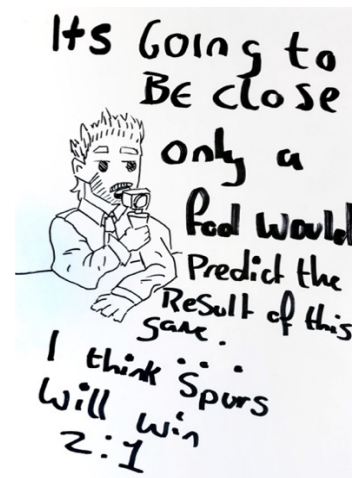 Its Going to
BE close
only a
fool would
Predict the
Result of this
game.
. . .
I think Spurs
will win
2:1